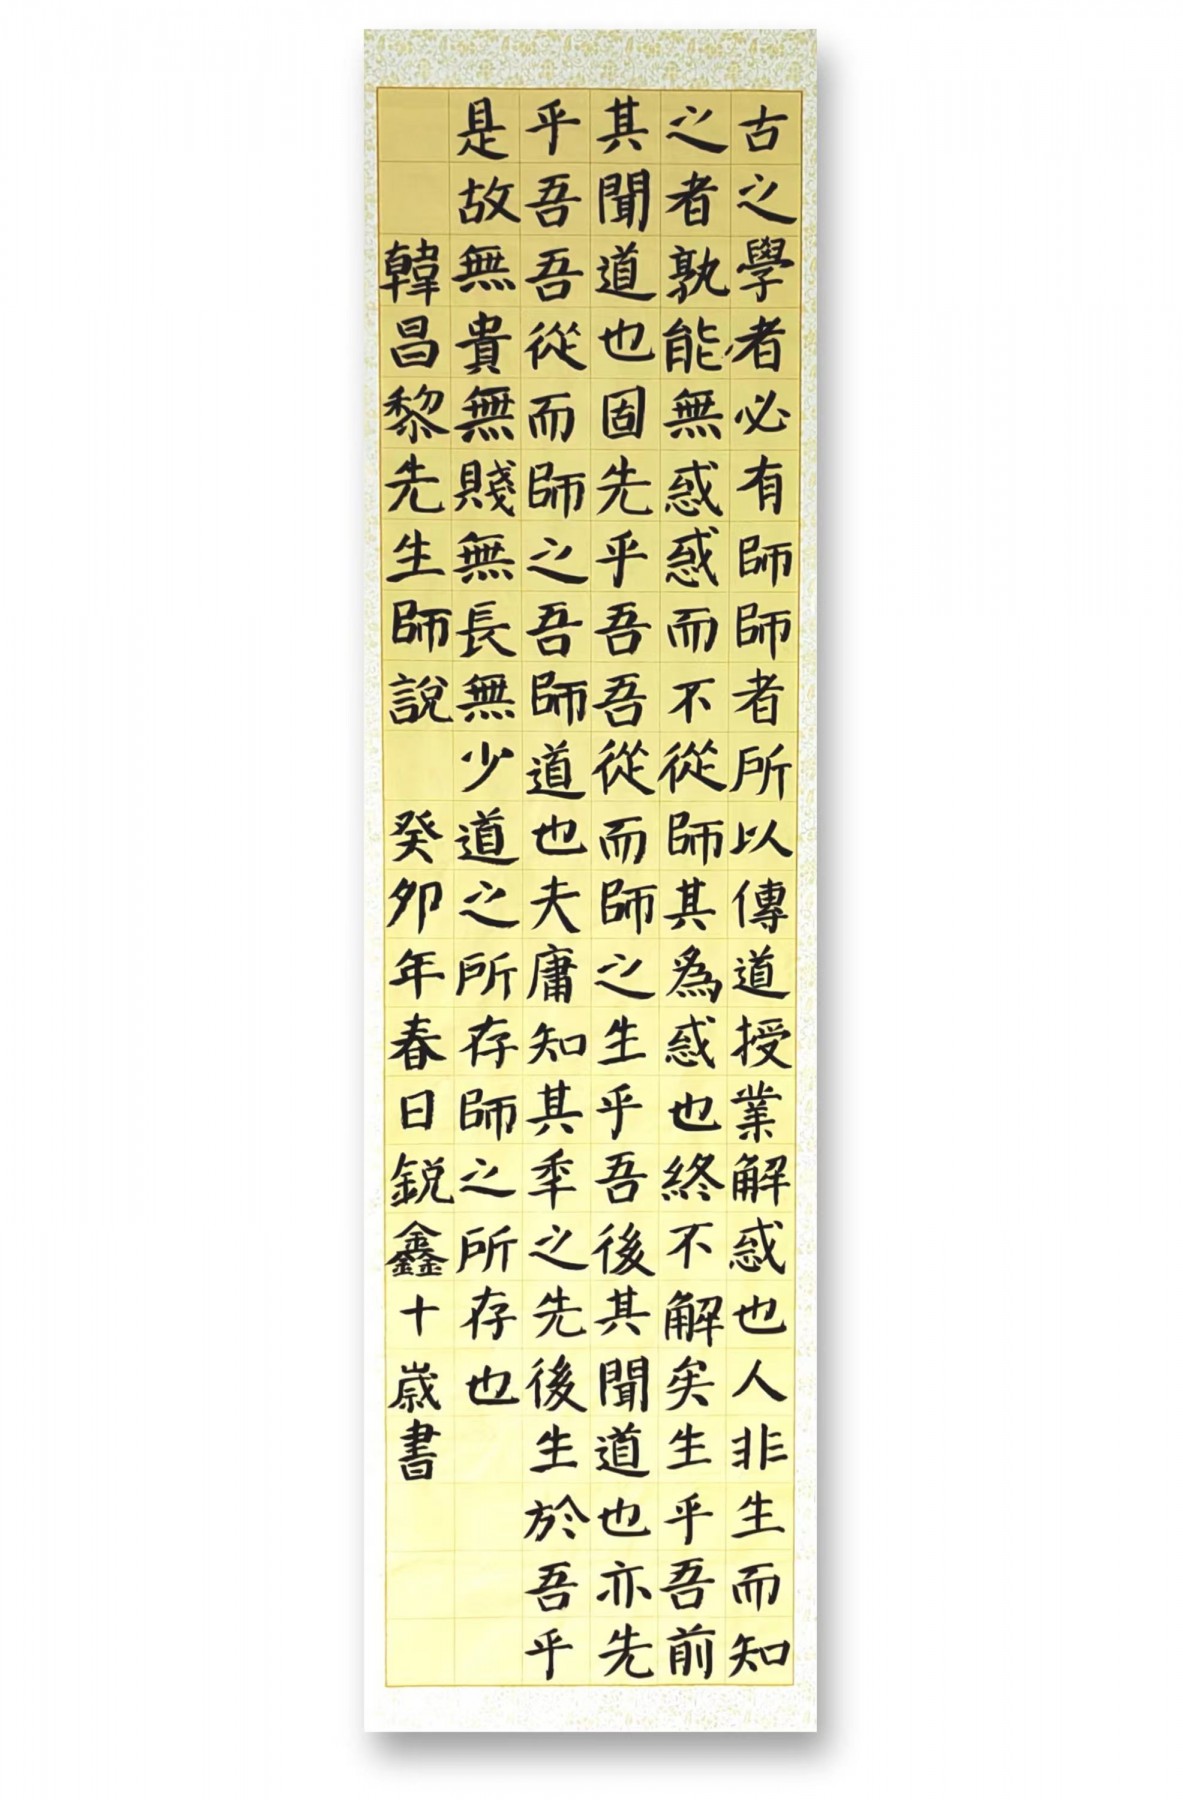 古之學者必有師師者所以傳道授業解惑也人非生而知
之者孰能無惑惑而不從師其爲惑也終不解矣生乎吾前
其聞道也固先乎吾吾從而師之生乎吾後其聞道也亦先
乎吾吾從而師之吾師道也夫庸知其秊之先後生於吾乎
是故無貴無賤無長無少道之所存師之所存也
韓昌黎先生師說 癸卯年春日銳鑫十歲書